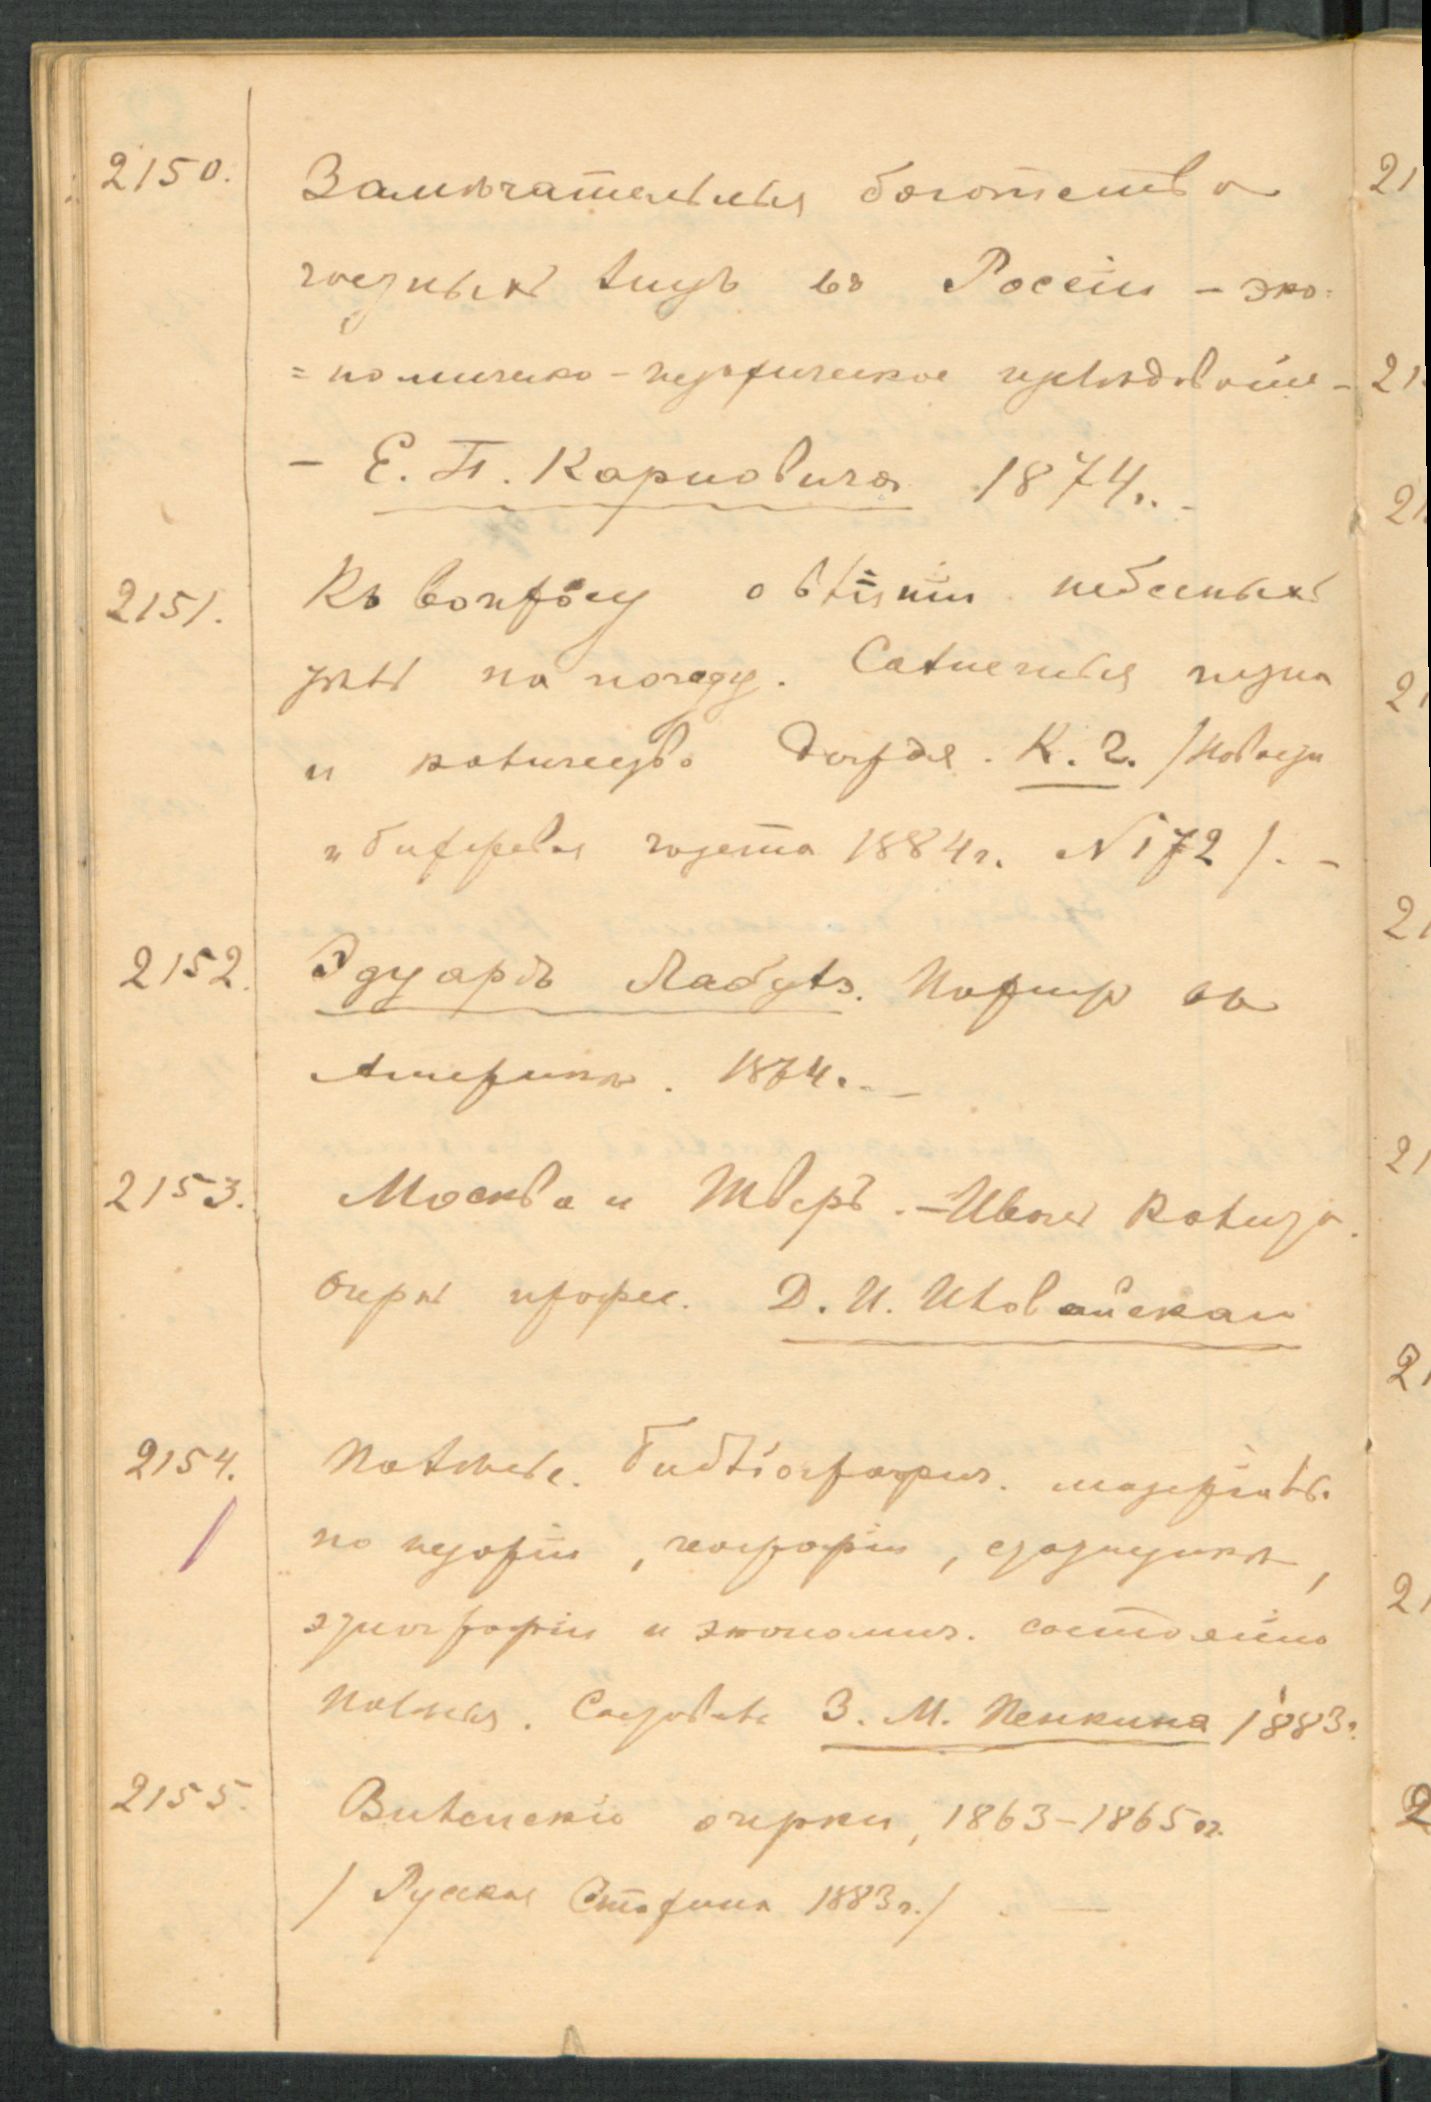 2150. Замѣчательныя богатства
частныхъ лицъ въ Россіи – эко-
=номическо-историческое изслѣдованіе –
– Е. П. Карновича 1874. –
2151. Къ вопросу о вліяніи небесныхъ
тѣлъ на погоду. Солнечныя пятна
и количество дождя. К. Г. /Новости
и биржевая газета 1884 г. № 172/. –
2152. Эдуардъ Лабулэ. Парижъ въ
Америкѣ. 1874. –
2153. Москва и Тверь. – Иванъ Калита.
Очеркъ профес. Д. И. Иловайскаго
2154. Полѣсье. Библіографич. матеріалы
по исторіи, географіи, статистикѣ,
этнографіи и экономич. состоянію
Полѣсья. Составилъ З. М. Пенкина 1883.
2155. Виленскіе очерки, 1863–1865 гг.
/Русская Старина 1883 г./. –
21
21
21
21
21
21
21
21
2